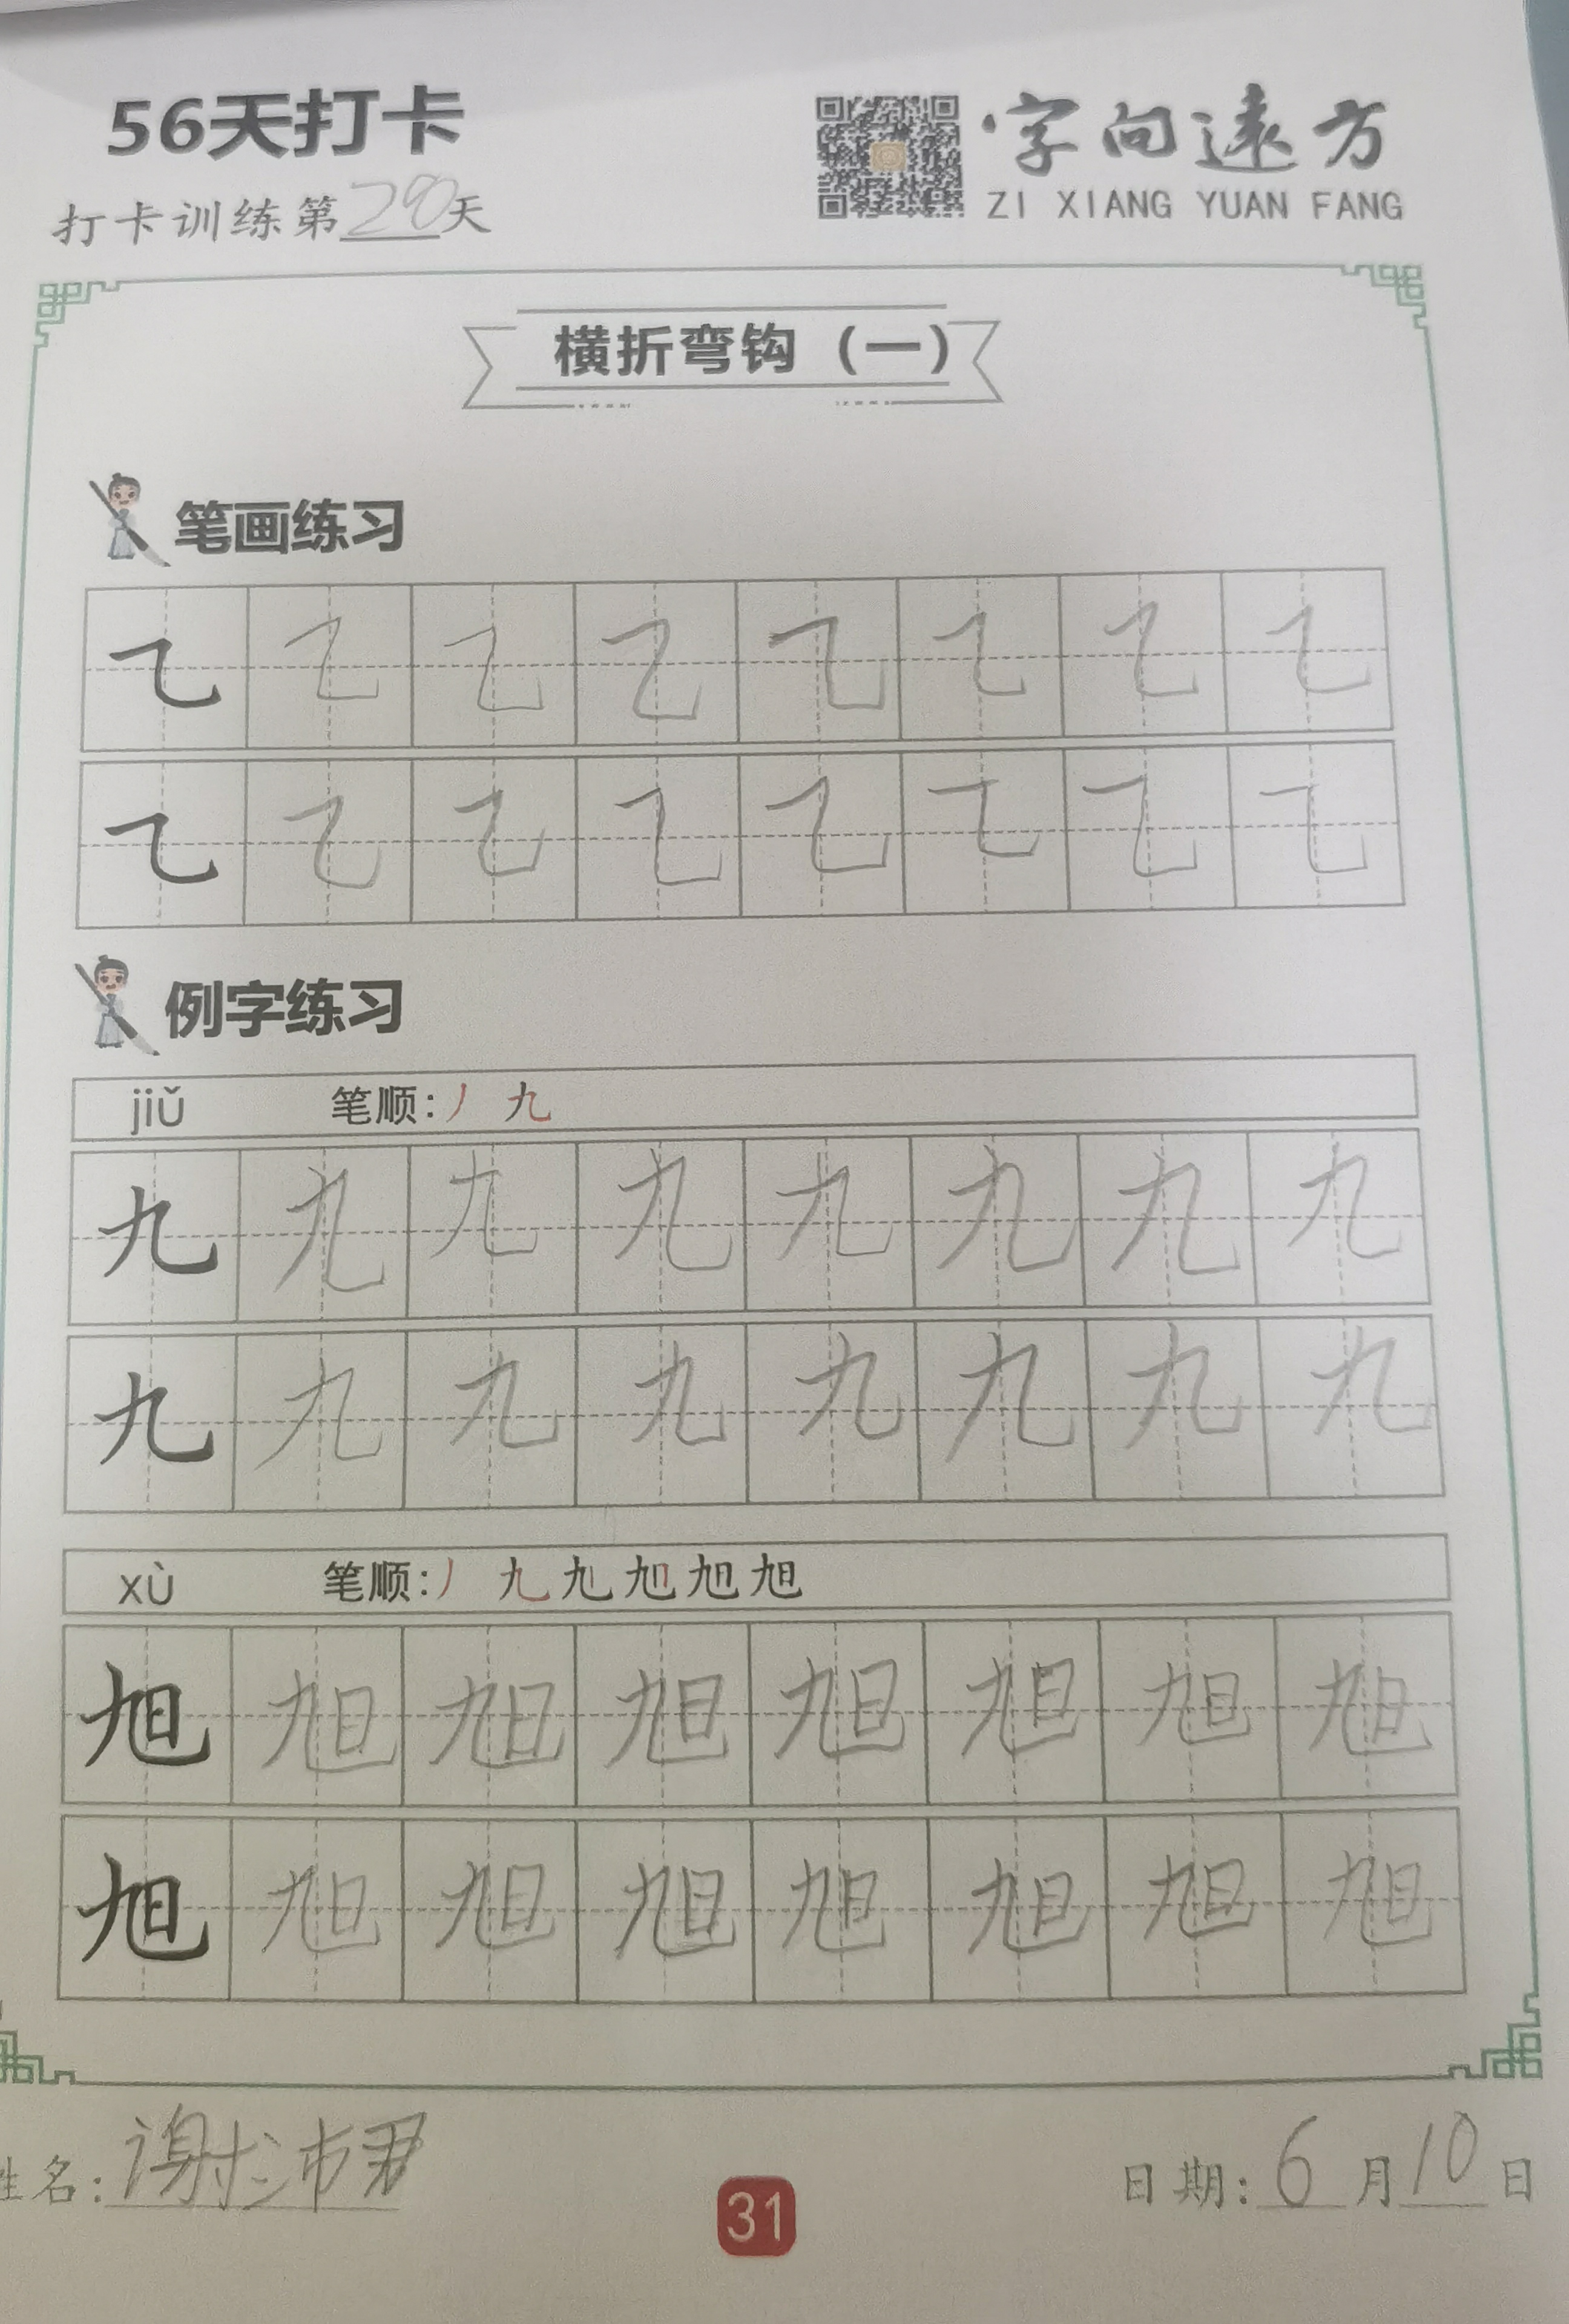 56天打卡
字向遠方
ZI XIANG YUAN FANG
打卡训练第 天
横折弯钩（一）
笔画练习
例字练习
jiǔ 笔顺:丿 九
九 九 九 九 九 九 九 九
九 九 九 九 九 九 九 九
xù 笔顺:丿 九 旭 旭 旭
旭 旭 旭 旭 旭 旭 旭 旭
旭 旭 旭 旭 旭 旭 旭 旭
姓名: 谢
日期: 6月10日
31